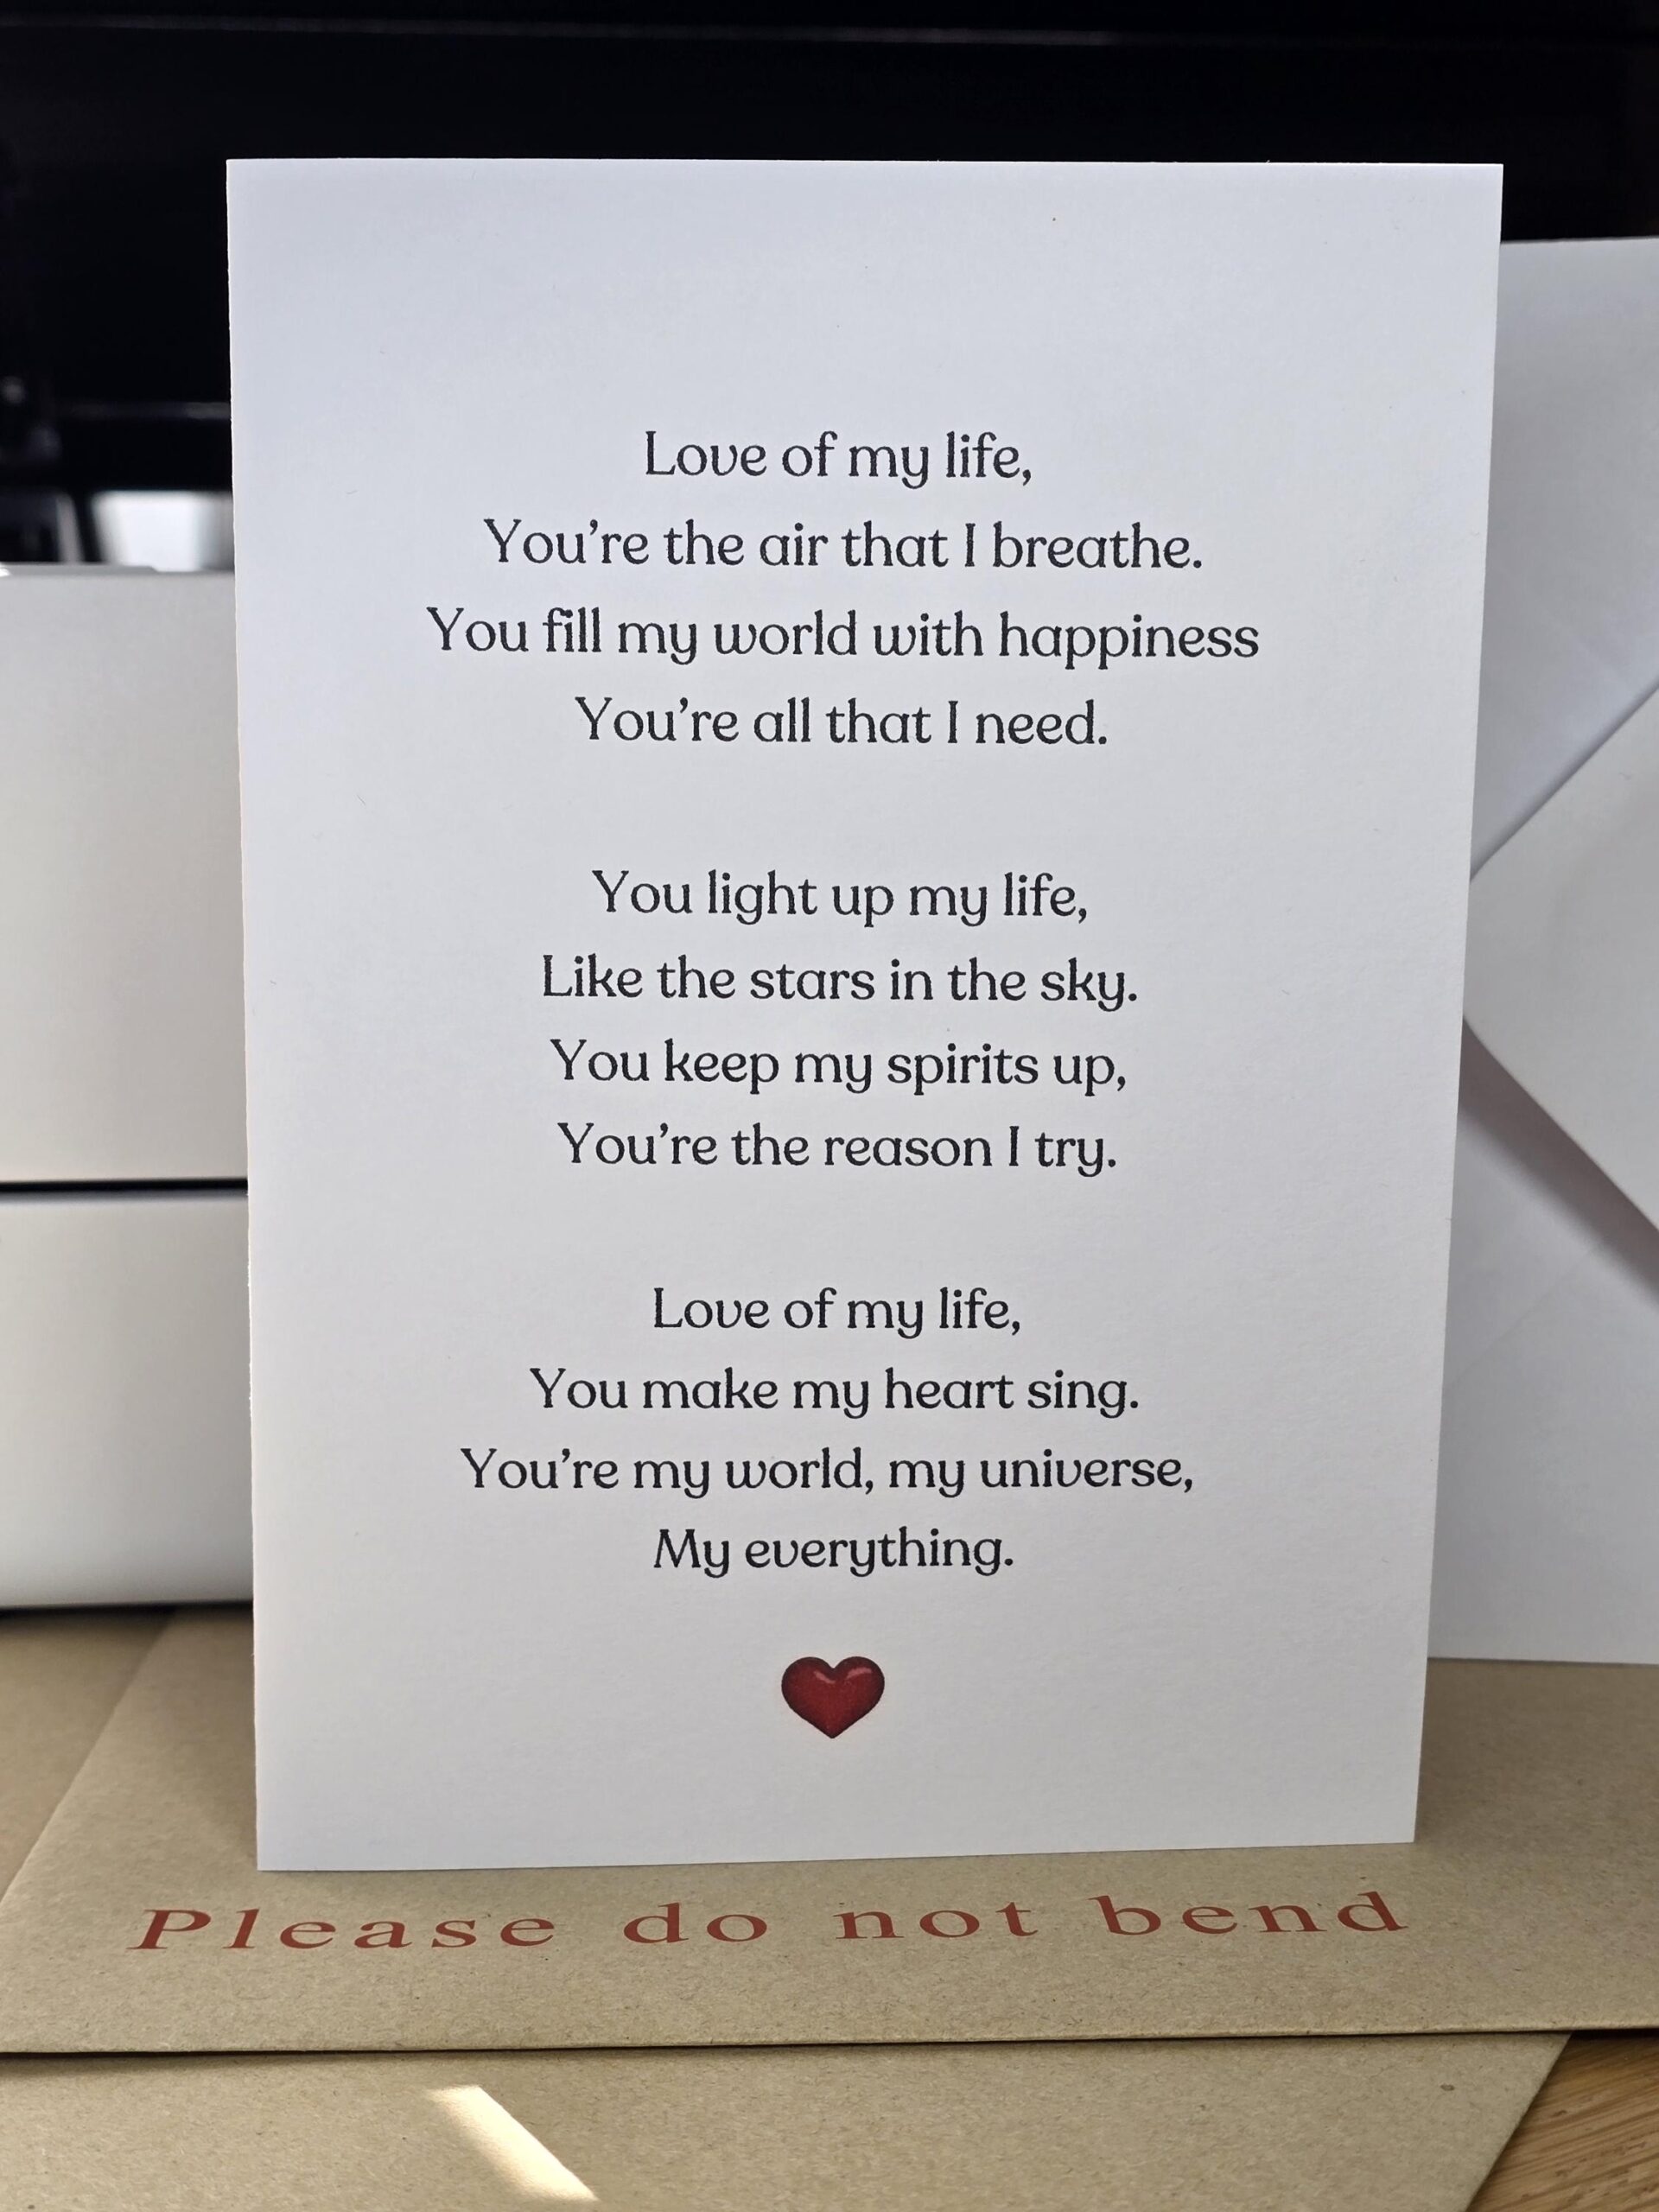 Love of my life,
You’re the air that I breathe.
You fill my world with happiness
You’re all that I need.
You light up my life,
Like the stars in the sky.
You keep my spirits up,
You’re the reason I try.
Love of my life,
You make my heart sing.
You’re my world, my universe,
My everything.
Please do not bend